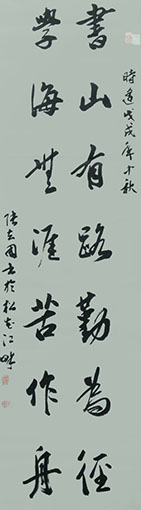 時逢戊戌年中秋
書山有路勤為徑
學海無涯苦作舟
張立國書於松花江畔